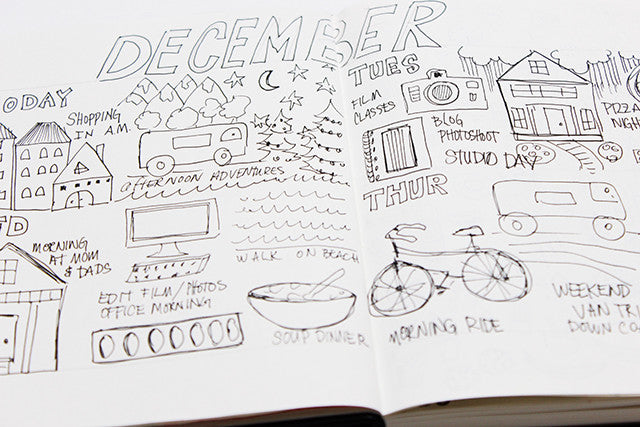 DECEMBER
ODAY
SHOPPING
IN A.M.
AFTERNOON ADVENTURES
D
MORNING
AT MOM
& DADS
EDIT FILM/PHOTOS
OFFICE MORNING
WALK ON BEACH
SOUP DINNER
TUES
FILM
CLASSES
BLOG
PHOTOSHOOT
STUDIO DAY
PIZZA
NIGH
THUR
MORNING RIDE
WEEKEND
VAN TRI
DOWN CO